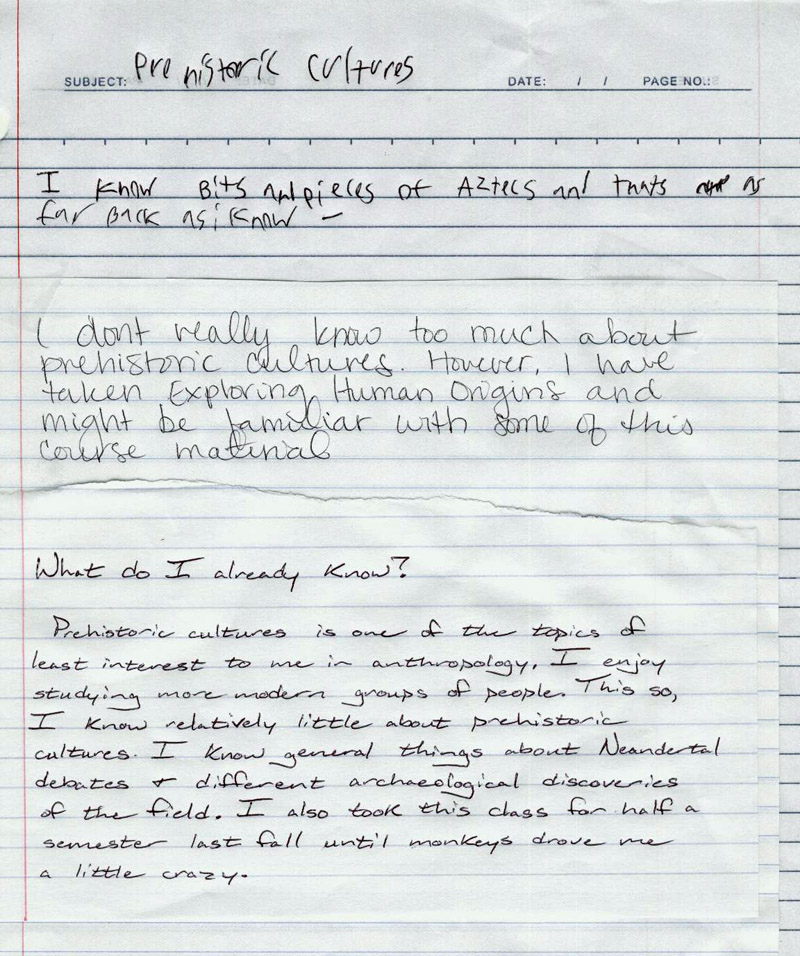 SUBJECT: Prehistoric cultures DATE: / / PAGE NO.:
I know Bits and pieces of Aztecs and thats as
far Back as i know –
I dont really know too much about
prehistoric cultures. However, I have
taken Exploring Human Origins and
might be familiar with some of this
course material
What do I already know?
Prehistoric cultures is one of the topics of
least interest to me in anthropology. I enjoy
studying more modern groups of people. This so,
I know relatively little about prehistoric
cultures. I know general things about Neandertal
debates + different archaeological discoveries
of the field. I also took this class for half a
semester last fall until monkeys drove me
a little crazy.